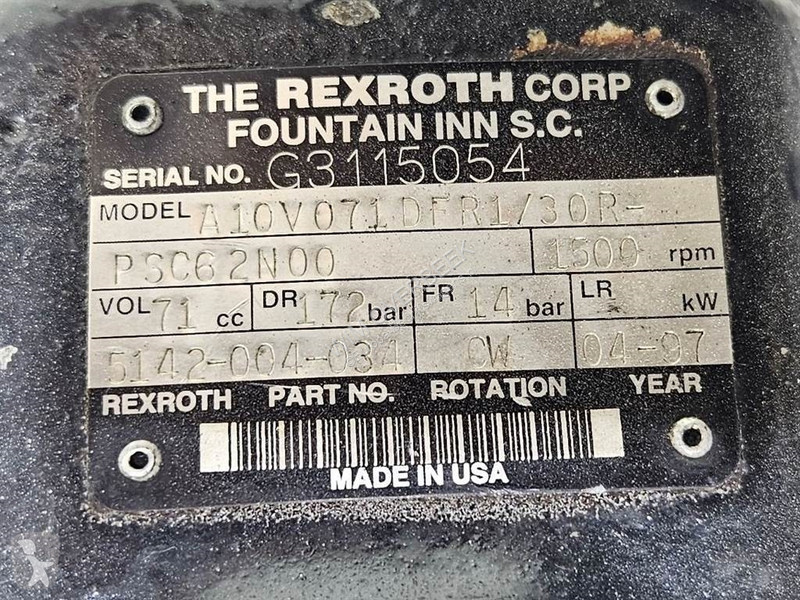 THE REXROTH CORP
FOUNTAIN INN S.C.
SERIAL NO. G3115054
MODEL A10VO71DFR1/30R-
PSC62N00 1500 rpm
VOL 71 cc DR 172 bar FR 14 bar LR - kW
5142-004-034 CW 04-97
REXROTH PART NO. ROTATION YEAR
MADE IN USA